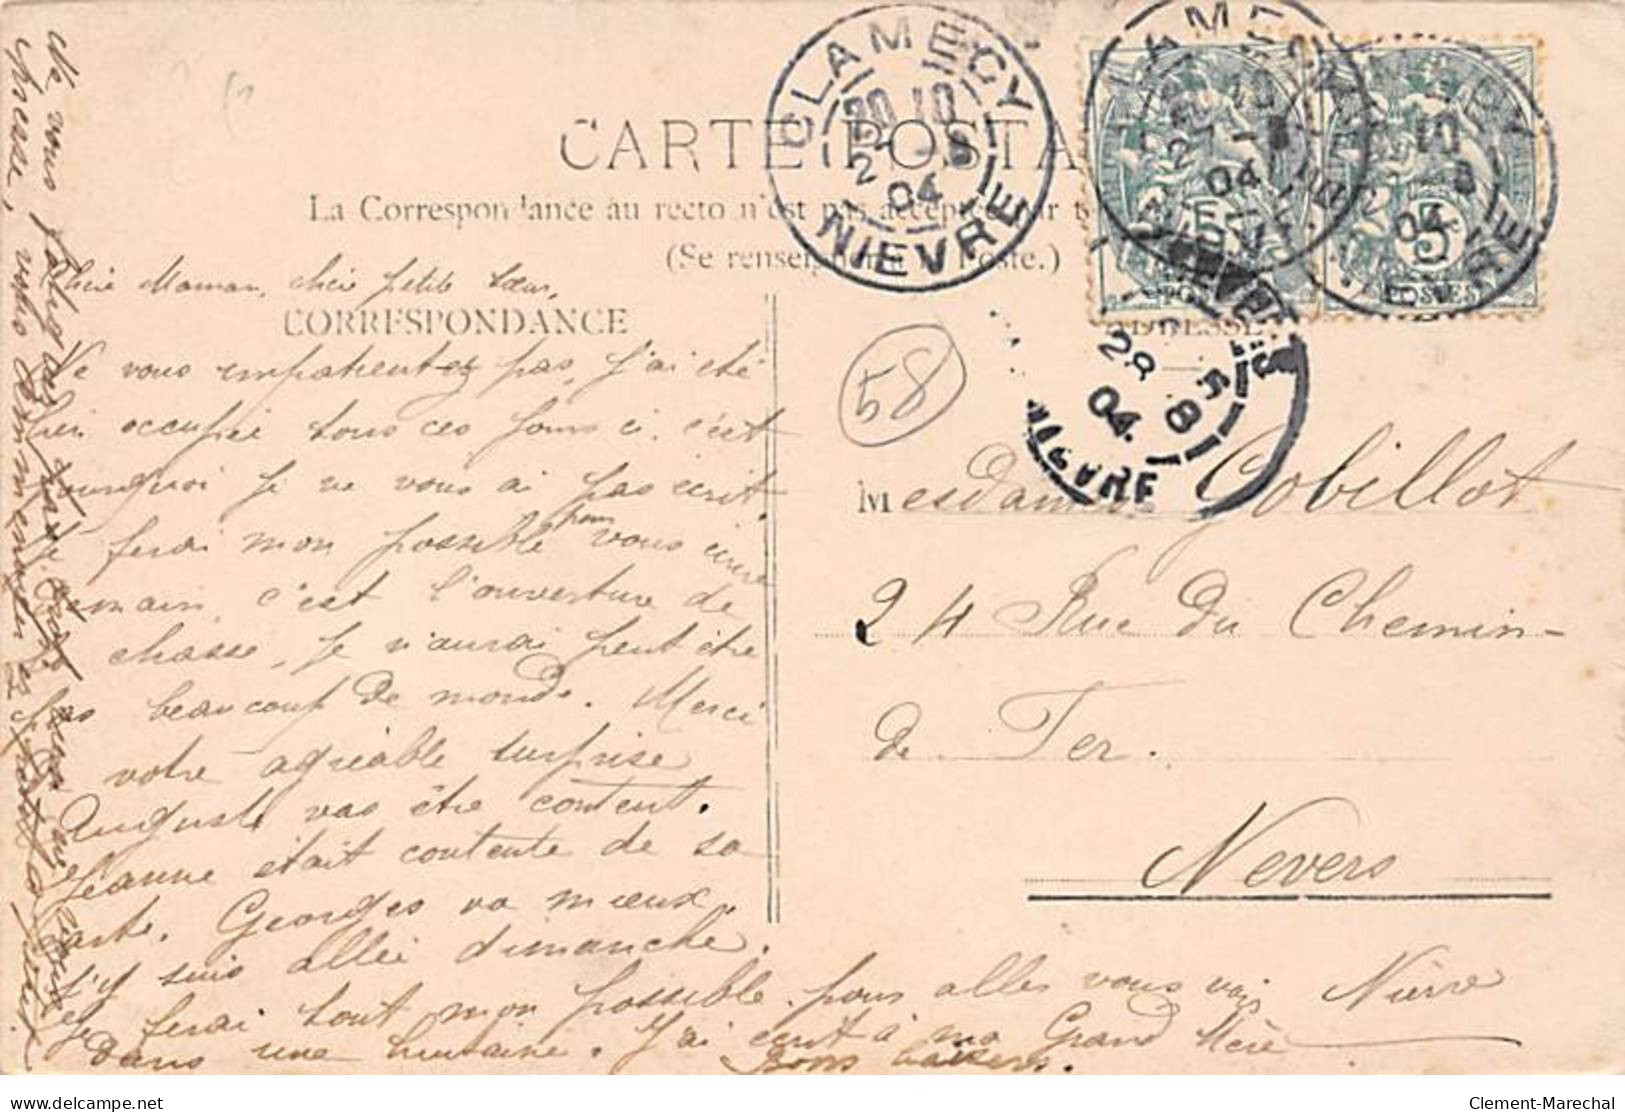 CARTE POSTA
La Correspondance au recto n'est pas accept
(Se renseigner à la Poste.)
CORRESPONDANCE
ADRESSE
CLAMECY
NIEVRE
04
CLAMECY
04
5
5
POSTES
28 8
04
NIEVRE
58
Chère Maman, chère petite sœur,
Ne vous impatientez pas, j'ai été
bien occupée tous ces jours ci, c'est
pourquoi je ne vous ai pas écrit.
ferai mon possible pour vous écrire
demain, c'est l'ouverture de
chasse, je n'aurai peut être
pas beaucoup de monde. Merci
votre agréable surprise
Auguste vas être content.
Jeanne était contente de sa
carte. Georges va mieux
j'y suis allée dimanche.
Je ferai tout mon possible pour aller vous voir
Dans une huitaine. J'ai écrit à ma Grand Mère
Bons baisers.
Ne vous fatiguez pas
Mesdames Gobillot
24 Rue du Chemin-
de Fer.
Nevers
Nièvre
delcampe.net
Clement-Marechal